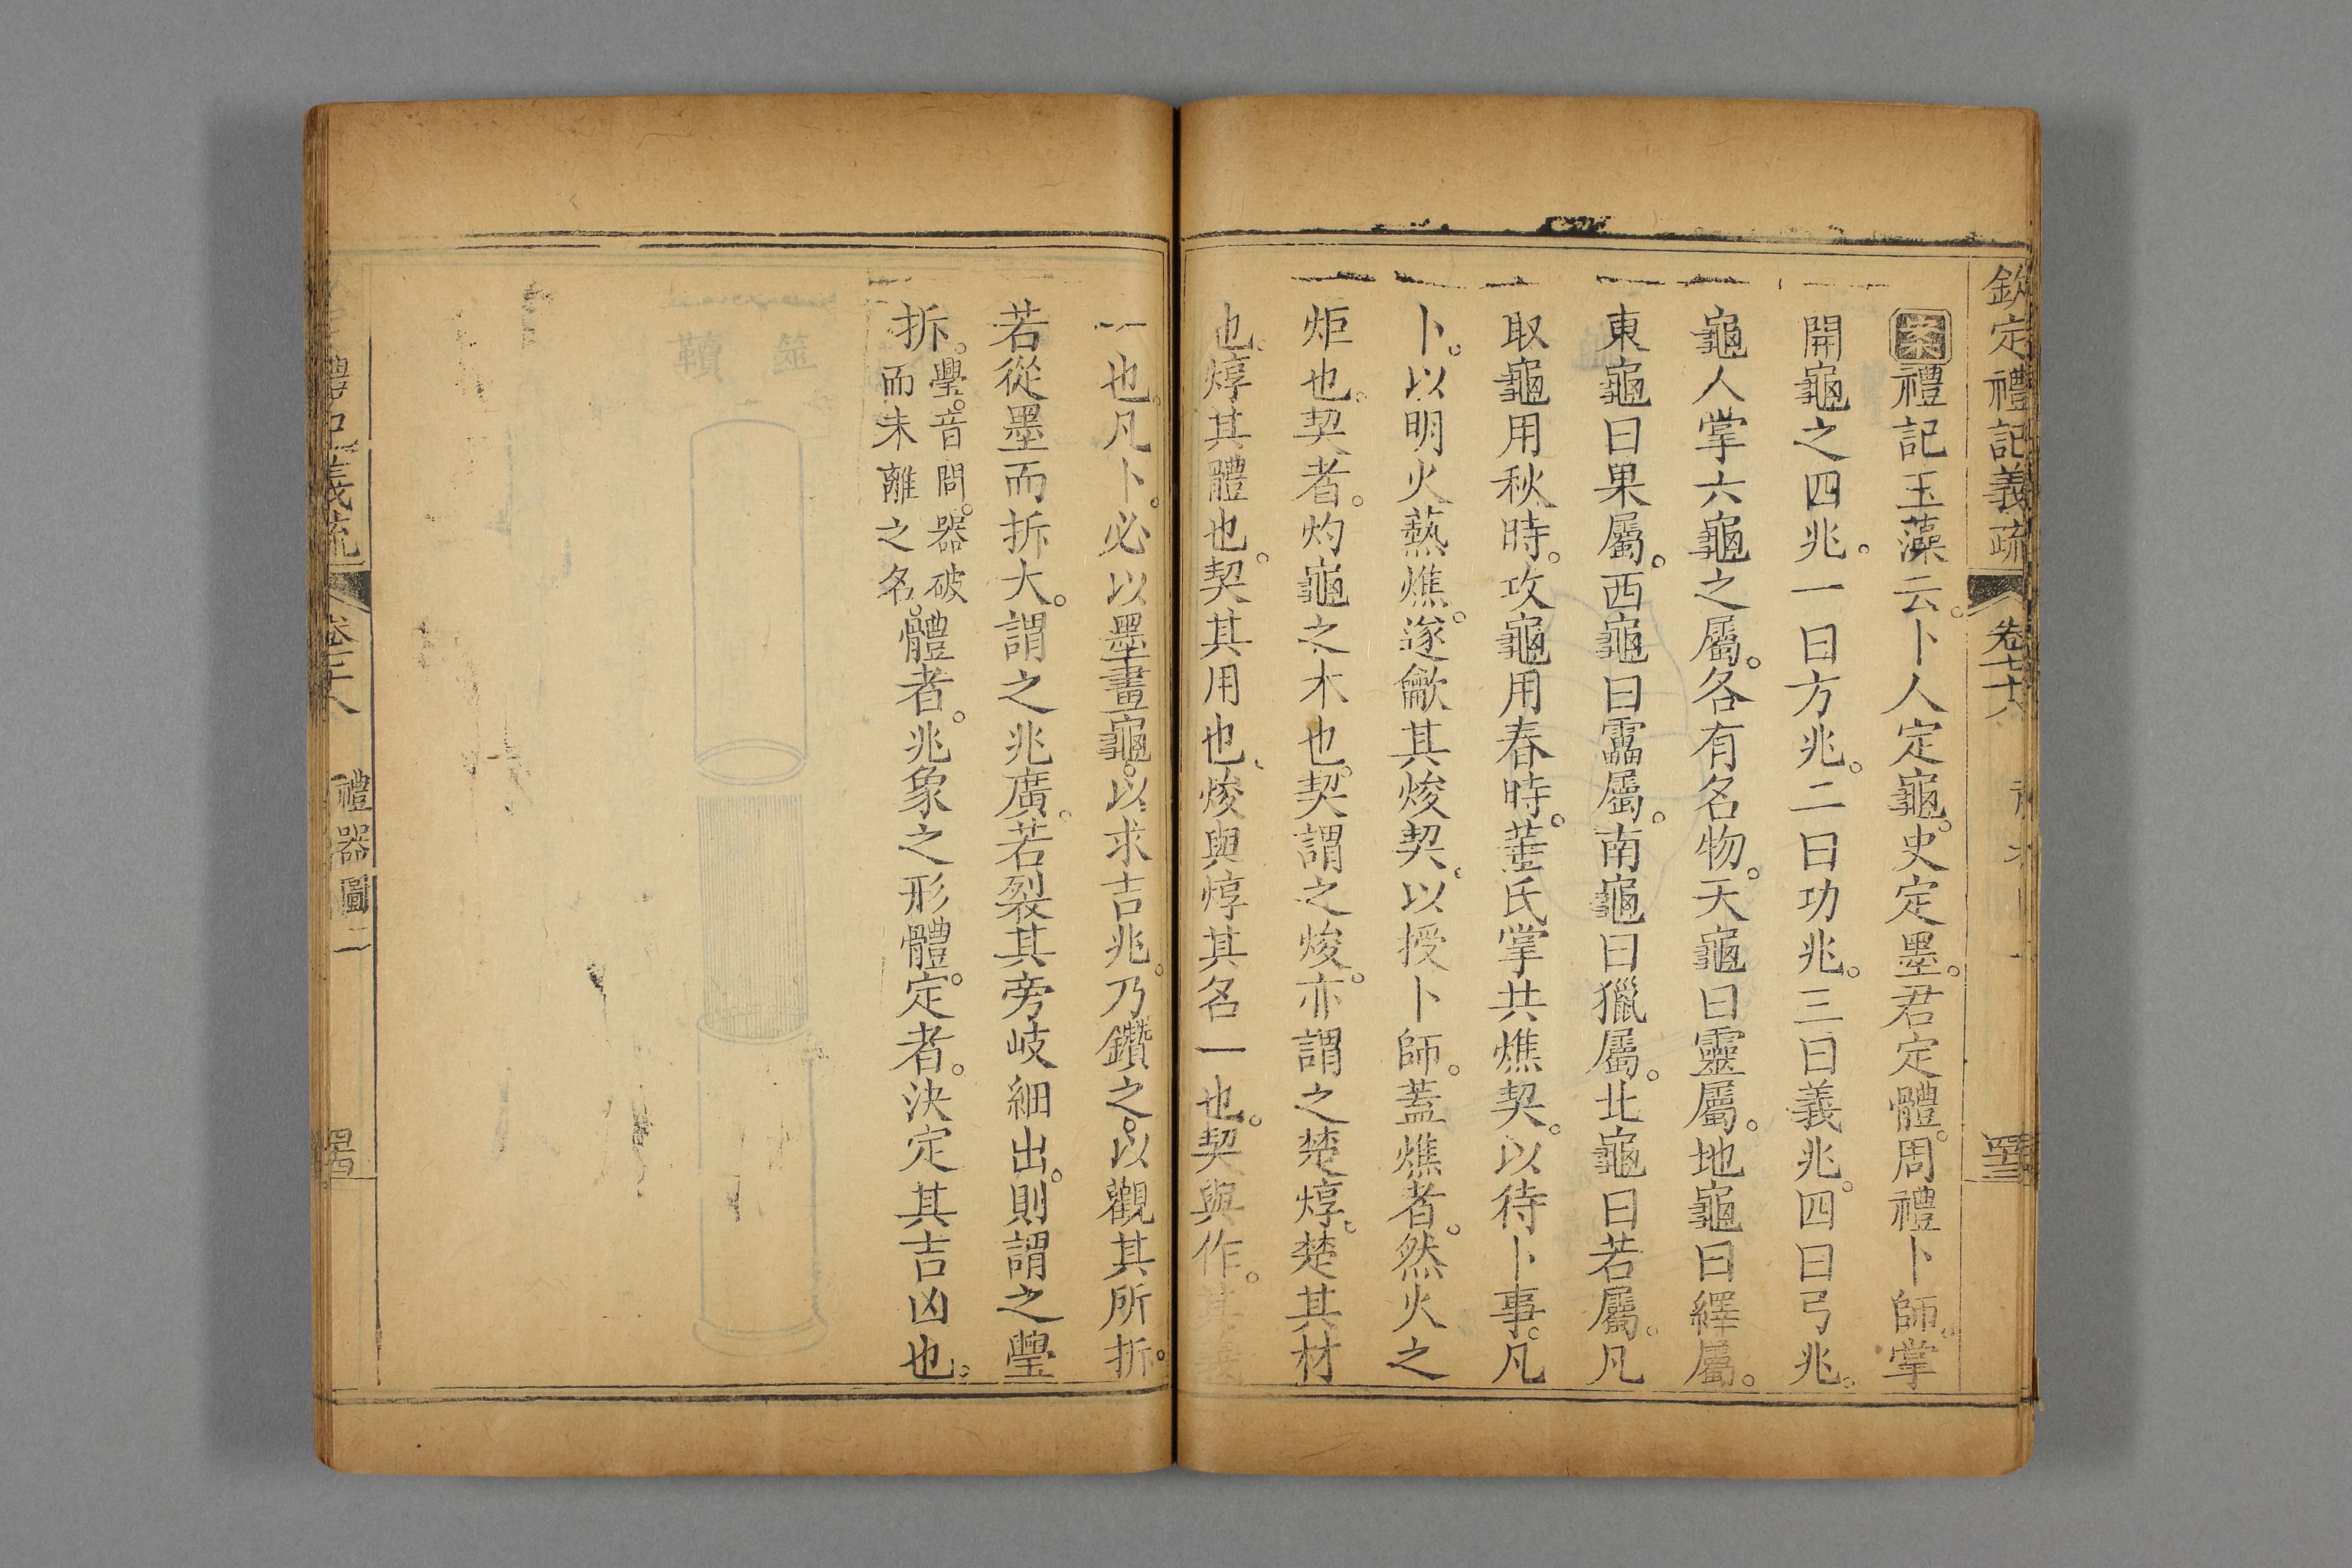 欽定禮記義疏
案禮記玉藻云。卜人定龜。史定墨。君定體。周禮卜師。掌
開龜之四兆。一曰方兆。二曰功兆。三曰義兆。四曰弓兆。
龜人掌六龜之屬。各有名物。天龜曰靈屬。地龜曰繹屬。
東龜曰果屬。西龜曰靁屬。南龜曰獵屬。北龜曰若屬。凡
取龜用秋時。攻龜用春時。菙氏掌共燋契。以待卜事。凡
卜。以明火爇燋。遂龡其焌契。以授卜師。蓋燋者。然火之
炬也。契者。灼龜之木也。契謂之焌。亦謂之楚焞。楚其材
也。焞其體也。契其用也。焌與焞其名一也。契與作。其
一也。凡卜。必以墨畫龜。以求吉兆。乃鑽之。以觀其所拆。
若從墨而拆大。謂之兆廣。若裂其旁岐細出。則謂之璺
拆。璺。音問。器破
而未離之名。體者。兆象之形體。定者。決定其吉凶也。
禮記義疏
禮器圖二